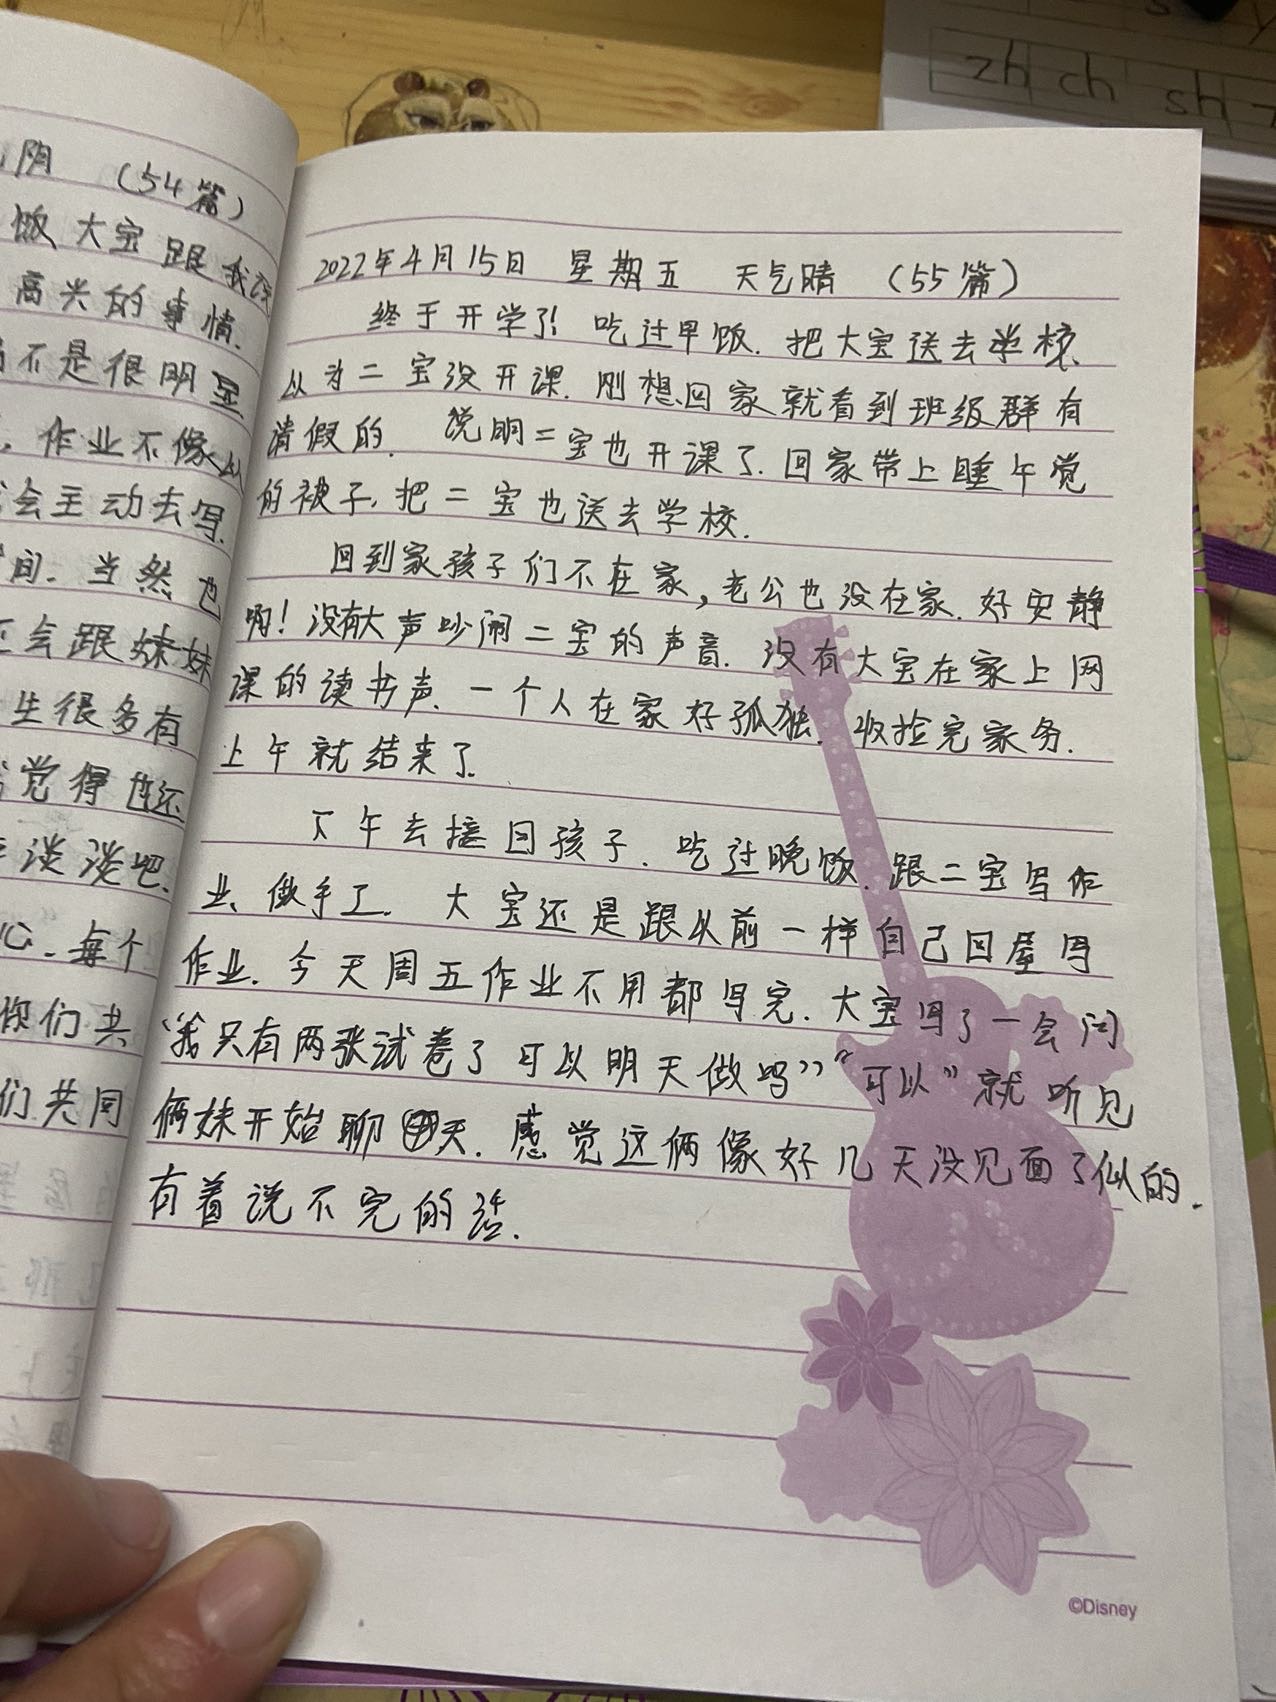 阴 (54篇)
饭大宝跟我说
高兴的事情.
不是很明显
,作业不像从
会主动去写.
间.当然也
会跟妹妹
生很多有
觉得 还
谈谈吧.
心.每个
你们共
们共同
2022年4月15日 星期五 天气晴 (55篇)
终于开学了!吃过早饭.把大宝送去学校.
以为二宝没开课.刚想回家就看到班级群有
请假的.说明二宝也开课了.回家带上睡午觉
的被子,把二宝也送去学校.
回到家孩子们不在家,老公也没在家.好安静
啊!没有大声吵闹二宝的声音.没有大宝在家上网
课的读书声.一个人在家好孤独.收捡完家务.
上午就结束了.
下午去接回孩子.吃过晚饭.跟二宝写作
业、做手工.大宝还是跟以前一样自己回屋写
作业.今天周五作业不用都写完.大宝写了一会问
“我只有两张试卷了可以明天做吗”“可以”就听见
俩妹开始聊天.感觉这俩像好几天没见面了似的.
有着说不完的话.
©Disney
zh ch sh
s y